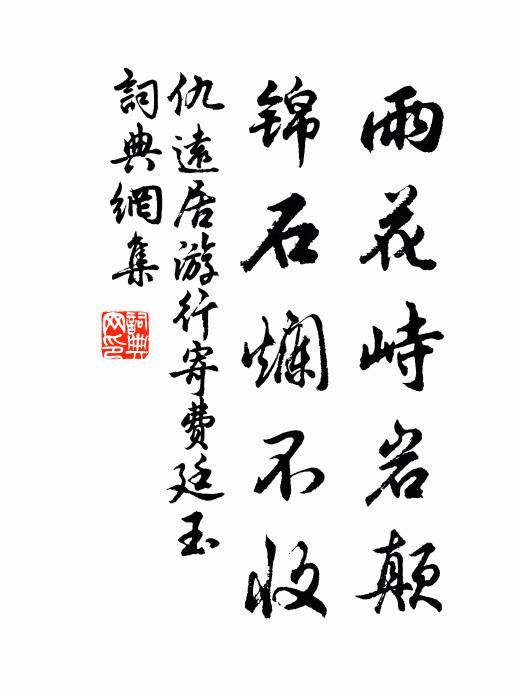 雨花峙岩颠
锦石爛不收
仇遠居游行寄費廷玉
詞典網集
詞典网印